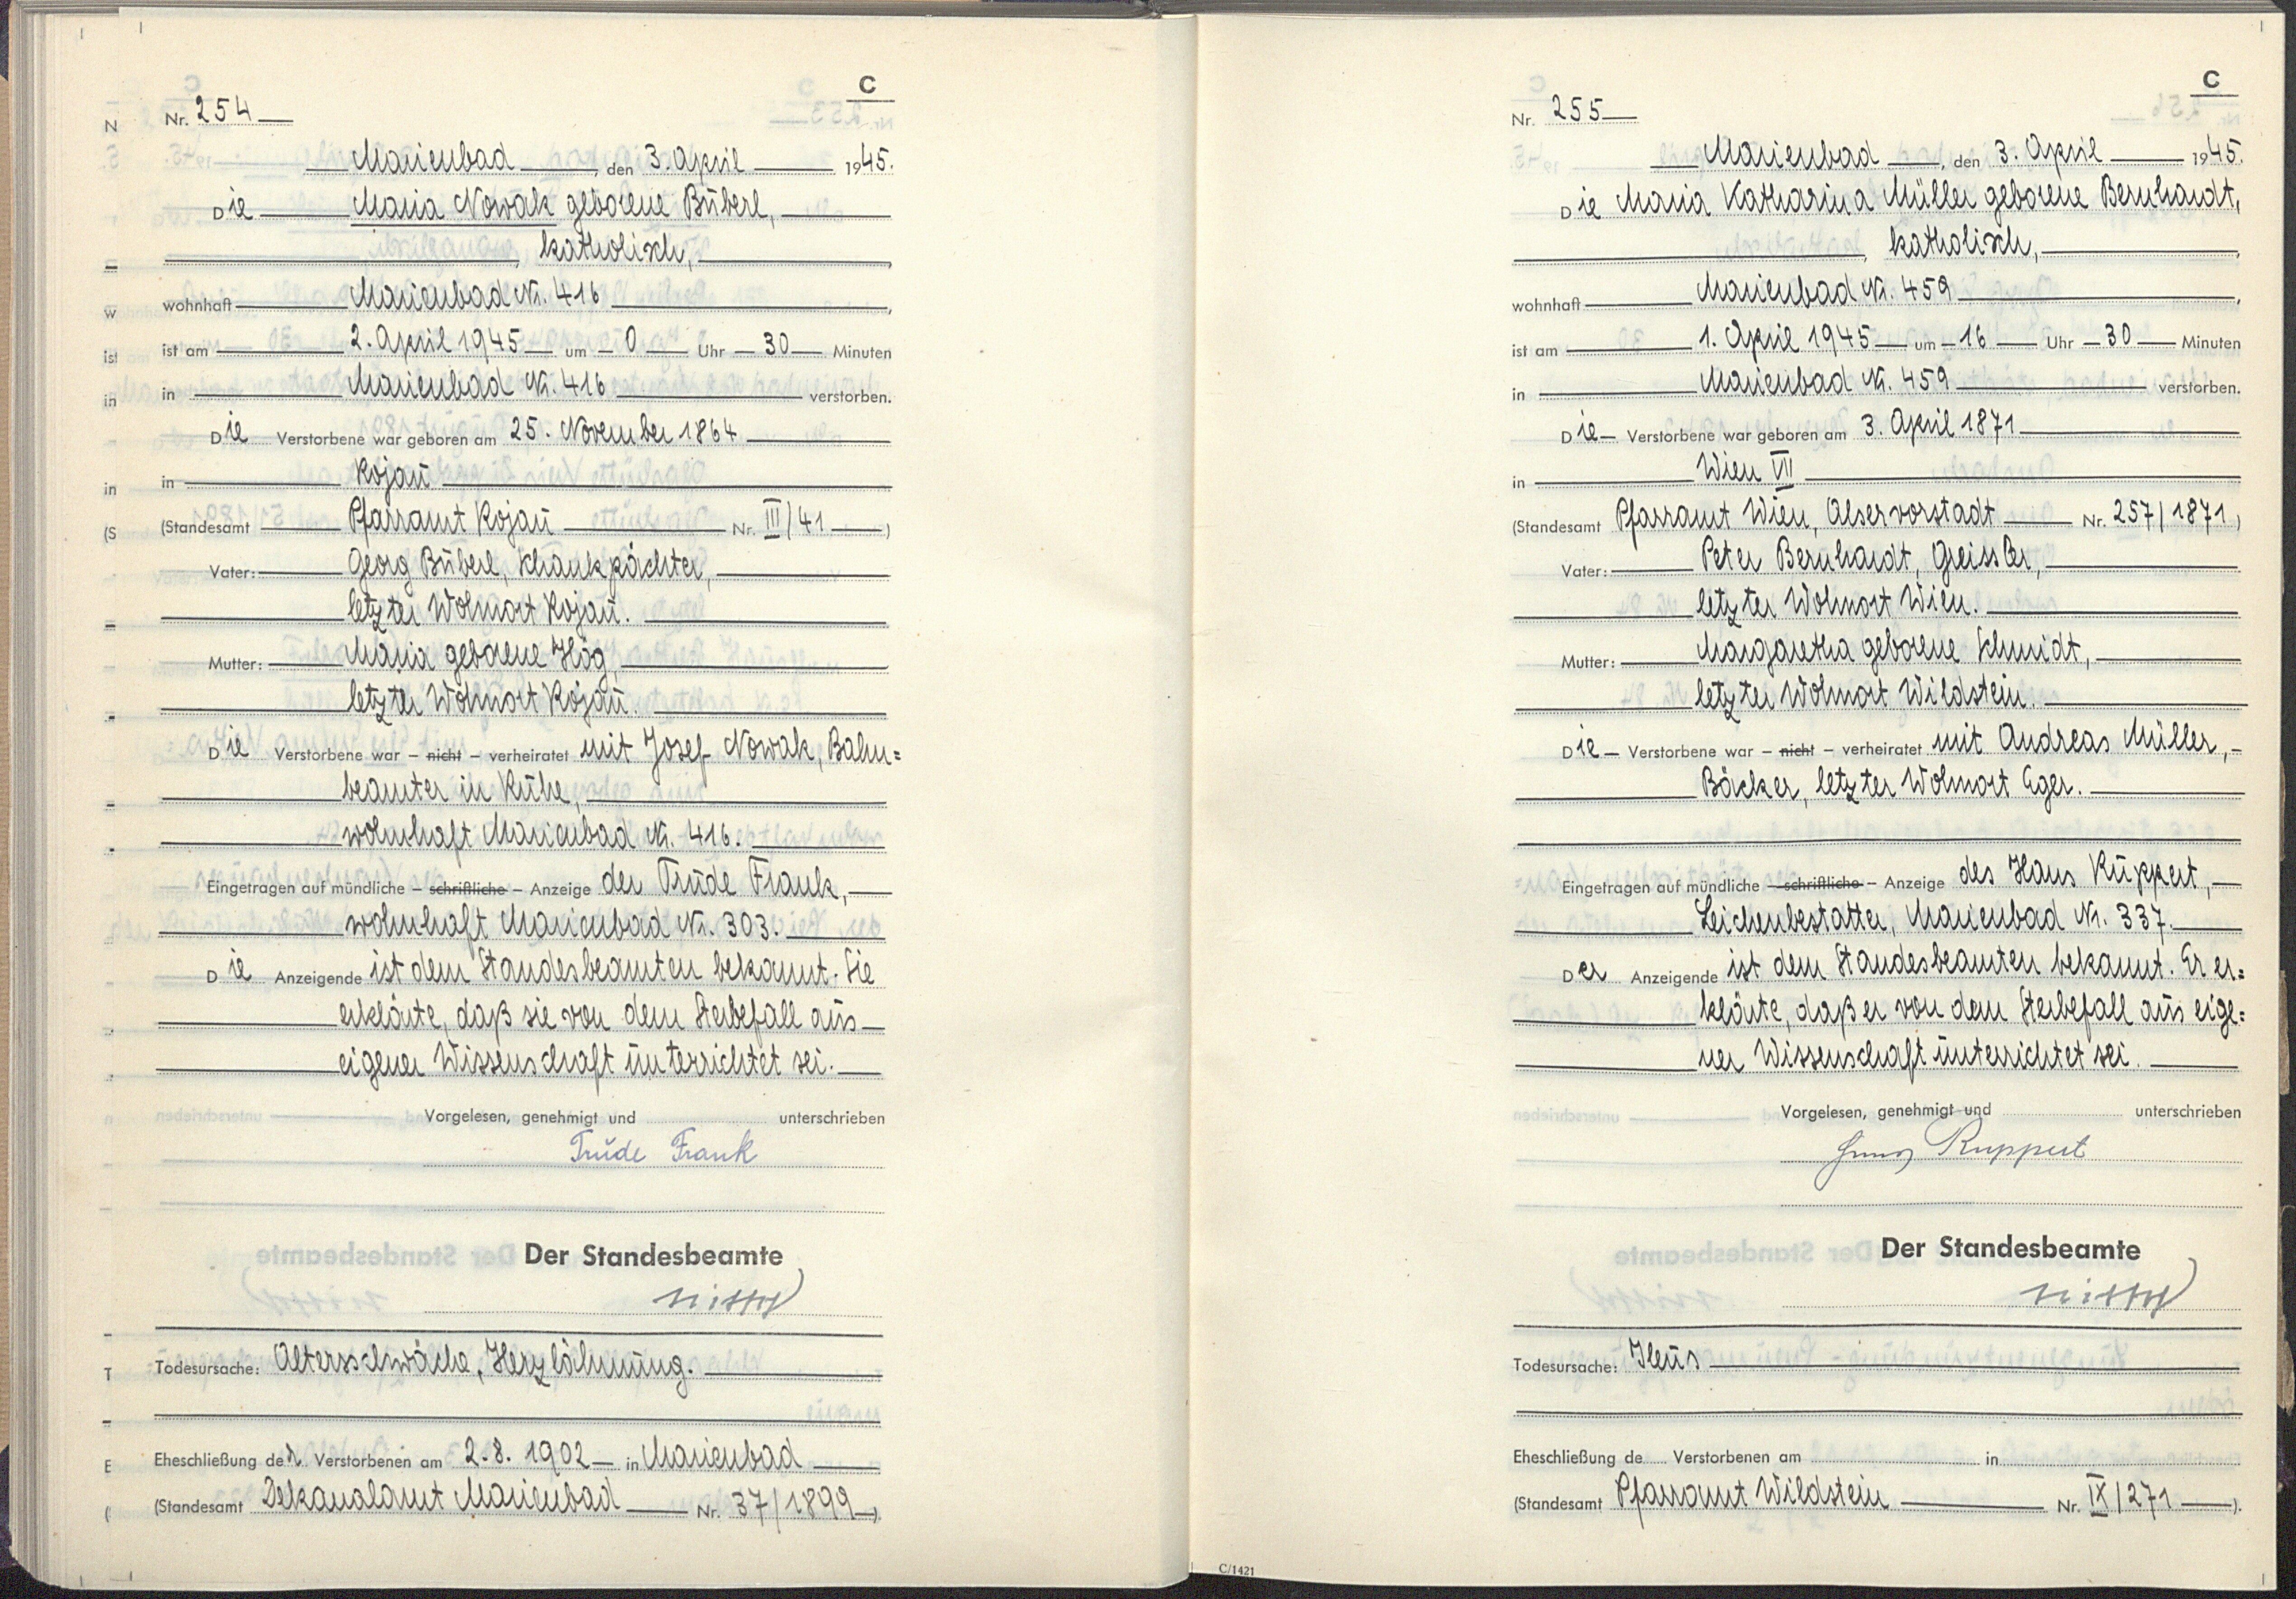 C
Nr. 254
Marienbad, den 3. April 1945.
Die Maria Nowak geborene Büberl,
katholisch,
wohnhaft Marienbad Nr. 416
ist am 2. April 1945 um 0 Uhr 30 Minuten
in Marienbad Nr. 416 verstorben.
Die Verstorbene war geboren am 25. November 1864
in Kojau
(Standesamt Pfarramt Kojau Nr. III/41)
Vater: Georg Büberl, Schankpächter,
letzter Wohnort Kojau.
Mutter: Maria geborene Häg,
letzter Wohnort Kojau.
Die Verstorbene war – nicht – verheiratet mit Josef Nowak, Bahn=
beamter in Ruhe,
wohnhaft Marienbad Nr. 416.
Eingetragen auf mündliche – schriftliche – Anzeige der Trude Frank,
wohnhaft Marienbad Nr. 303.
Die Anzeigende ist dem Standesbeamten bekannt. Sie
erklärte, daß sie von dem Sterbefall aus
eigener Wissenschaft unterrichtet sei.
Vorgelesen, genehmigt und unterschrieben
Trude Frank
Der Standesbeamte
Todesursache: Altersschwäche, Herzlähmung.
Eheschließung der Verstorbenen am 2.8. 1902 in Marienbad
(Standesamt Dekanalamt Marienbad Nr. 37/1899).
C
Nr. 255
Marienbad, den 3. April 1945.
Die Maria Katharina Müller geborene Bernhardt,
katholisch,
wohnhaft Marienbad Nr. 459
ist am 1. April 1945 um 16 Uhr 30 Minuten
in Marienbad Nr. 459 verstorben.
Die Verstorbene war geboren am 3. April 1871
in Wien VII
(Standesamt Pfarramt Wien, Alservorstadt Nr. 257/1871)
Vater: Peter Bernhardt, Greissler,
letzter Wohnort Wien.
Mutter: Margaretha geborene Schmidt,
letzter Wohnort Wildstein.
Die Verstorbene war – nicht – verheiratet mit Andreas Müller,
Bäcker, letzter Wohnort Eger.
Eingetragen auf mündliche – schriftliche – Anzeige des Hans Ruppert,
Leichenbestatter, Marienbad Nr. 337.
Der Anzeigende ist dem Standesbeamten bekannt. Er er=
klärte, daß er von dem Sterbefall aus eige=
ner Wissenschaft unterrichtet sei.
Vorgelesen, genehmigt und unterschrieben
Hans Ruppert
Der Standesbeamte
Todesursache: Ileus
Eheschließung de Verstorbenen am in
(Standesamt Pfarramt Wildstein Nr. IX/271).
C/1421